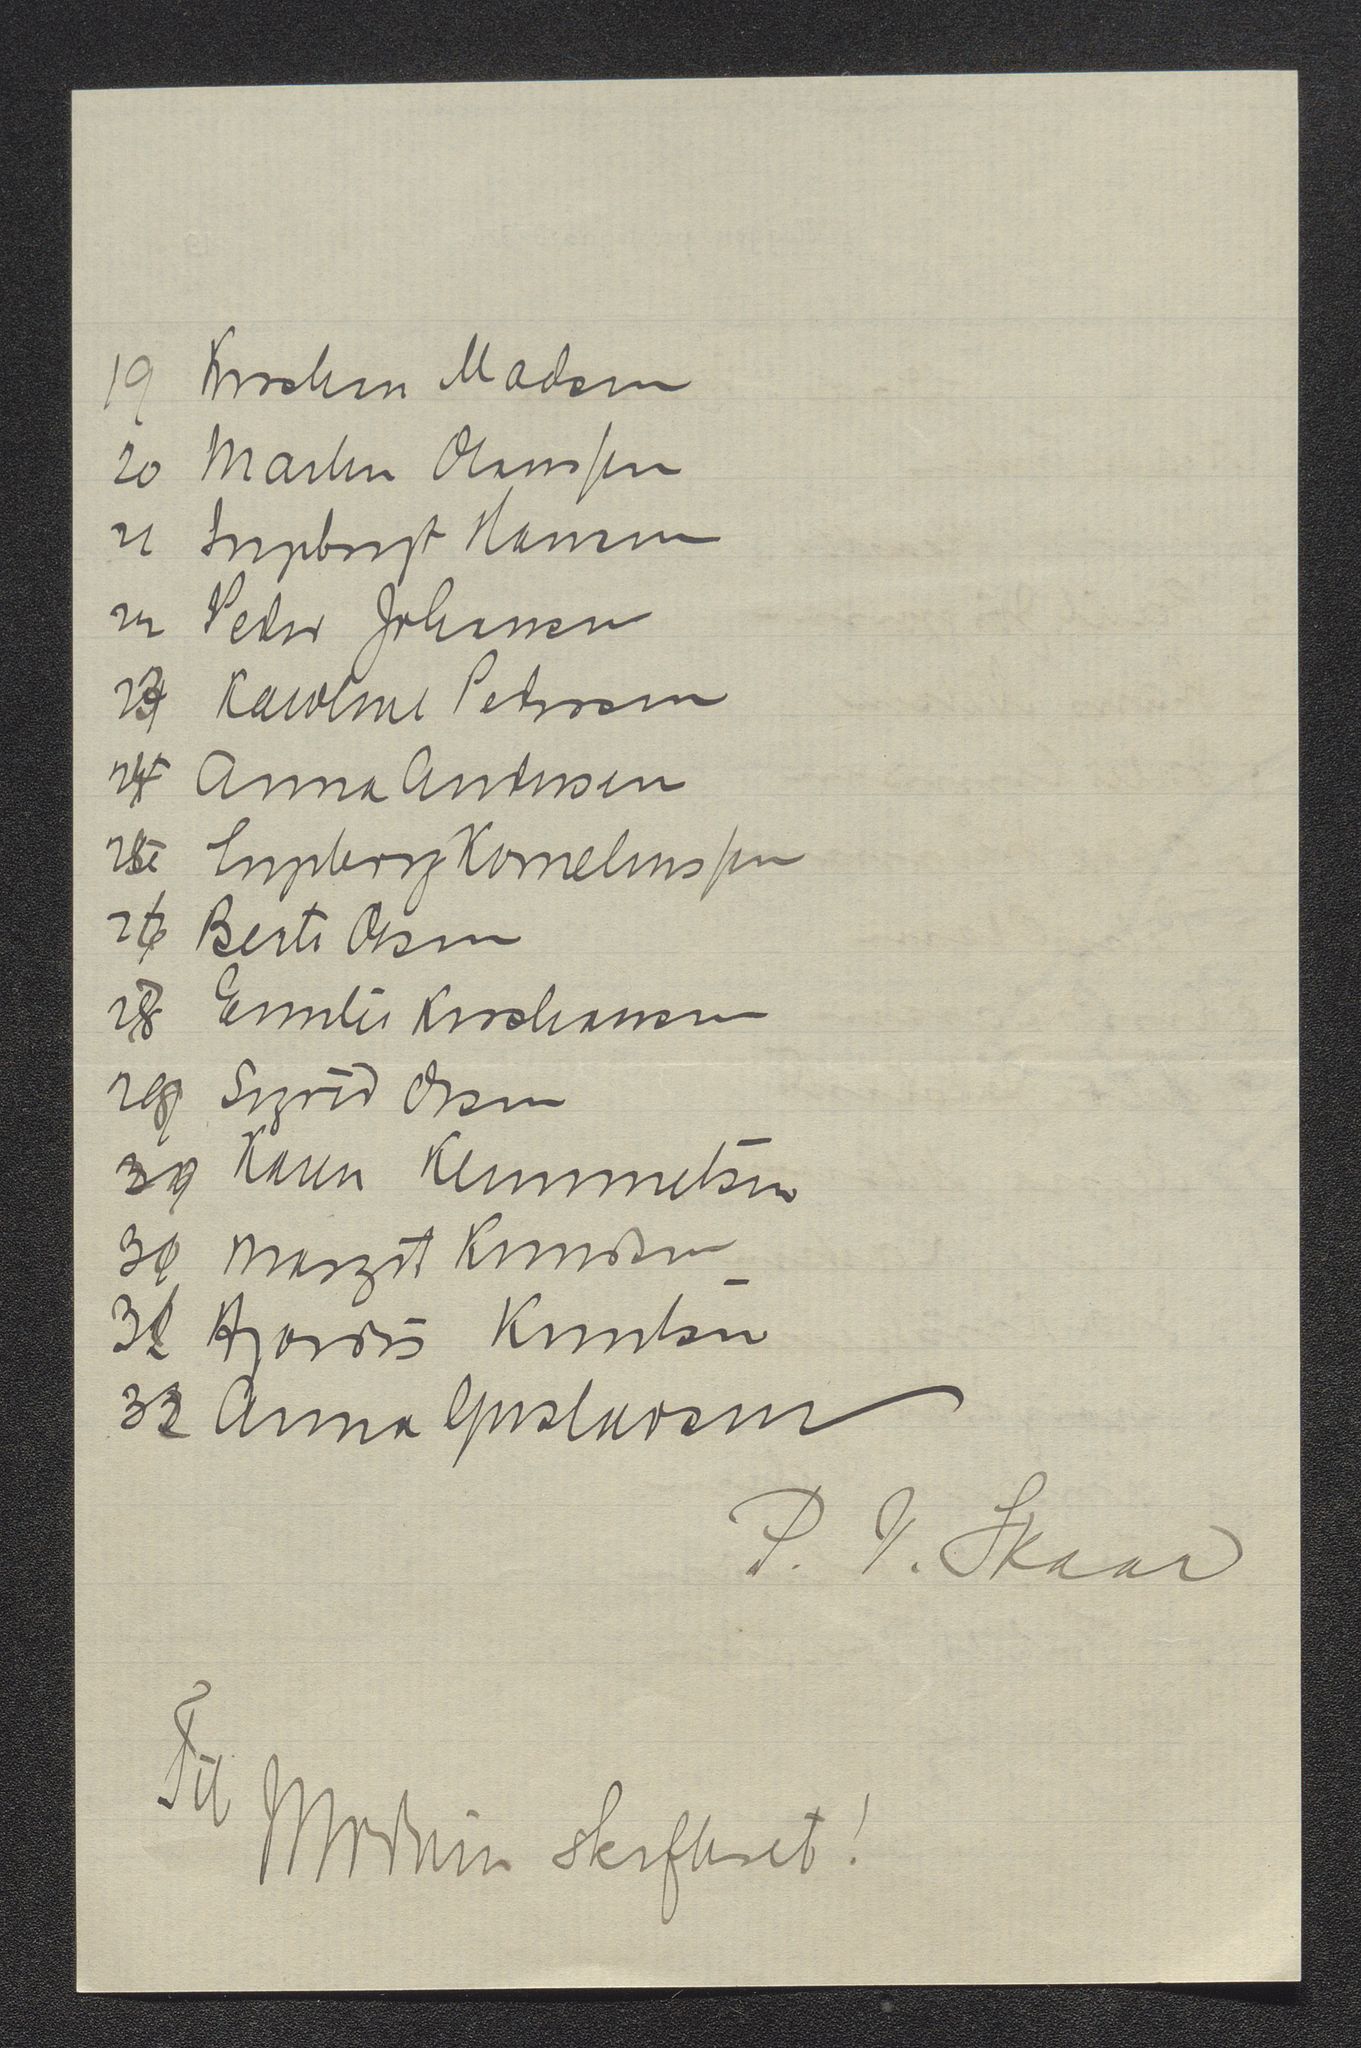 19 Kristian Madsen
20 Martin Olaussen
21 Ingeborgt Hansen
22 Peder Johansen
23 Karoline Pedersen
24 Anna Andersen
25 Ingeborg Korneliussen
26 Berte Olsen
Emilie Kristiansen
Sigrid Olsen
Karen Klemmetsen
Margit Knudsen
Hjørdis Knutsen
Anna Gustavsen
P. V. Skaar
Til
skifteret!